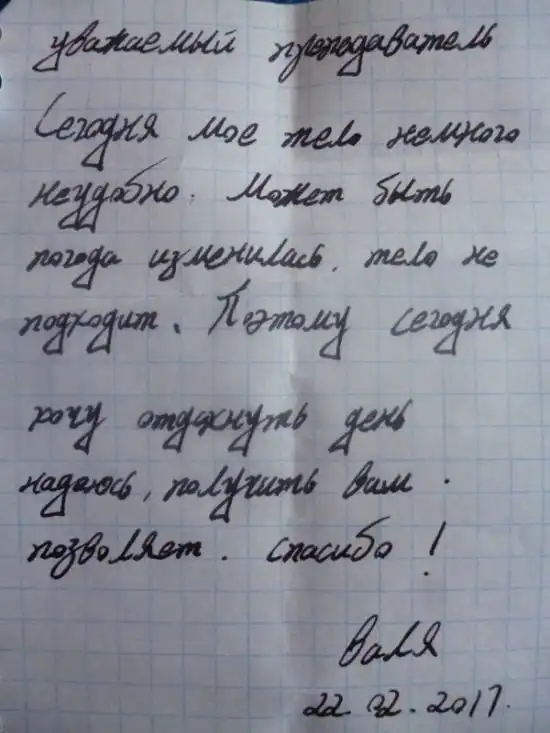 уважаемый преподаватель
Сегодня мое тело немного
неудобно. Может быть
погода изменилась, тело не
подходит. Поэтому сегодня
хочу отдохнуть день
надаюсь, получить вам.
позволяет. спасибо!
Валя
22. 02. 2017.